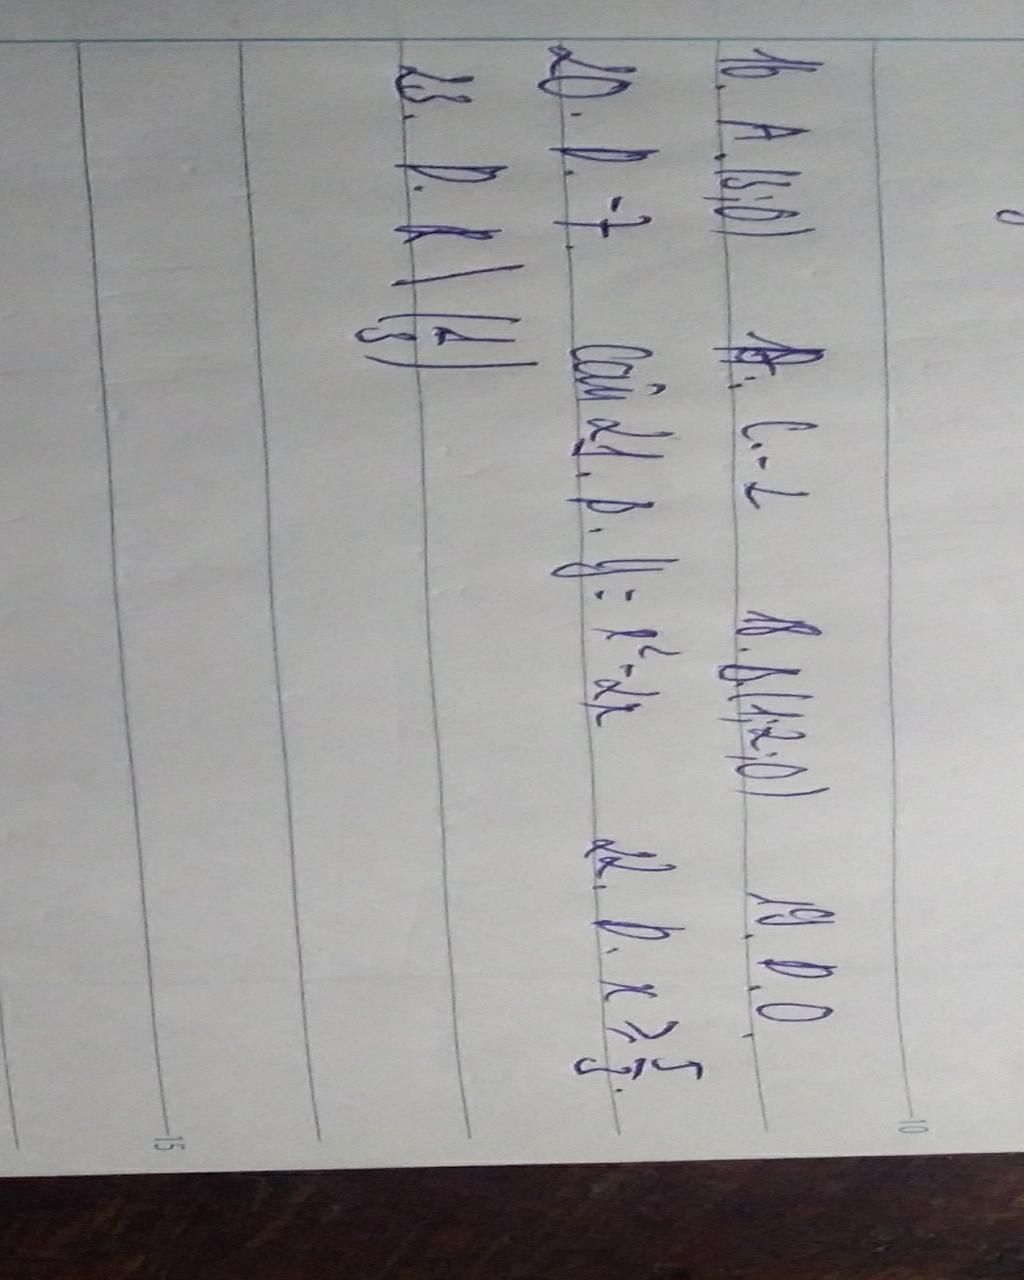 16. A. (3;0) 17. C. -2 18. B. (1;2;0) 19. D. 0
20. D. -7. Câu 21. D. y = x² - 2x 22. D. x ≥ 5/3.
23. D. R \ {1/3}
10
15